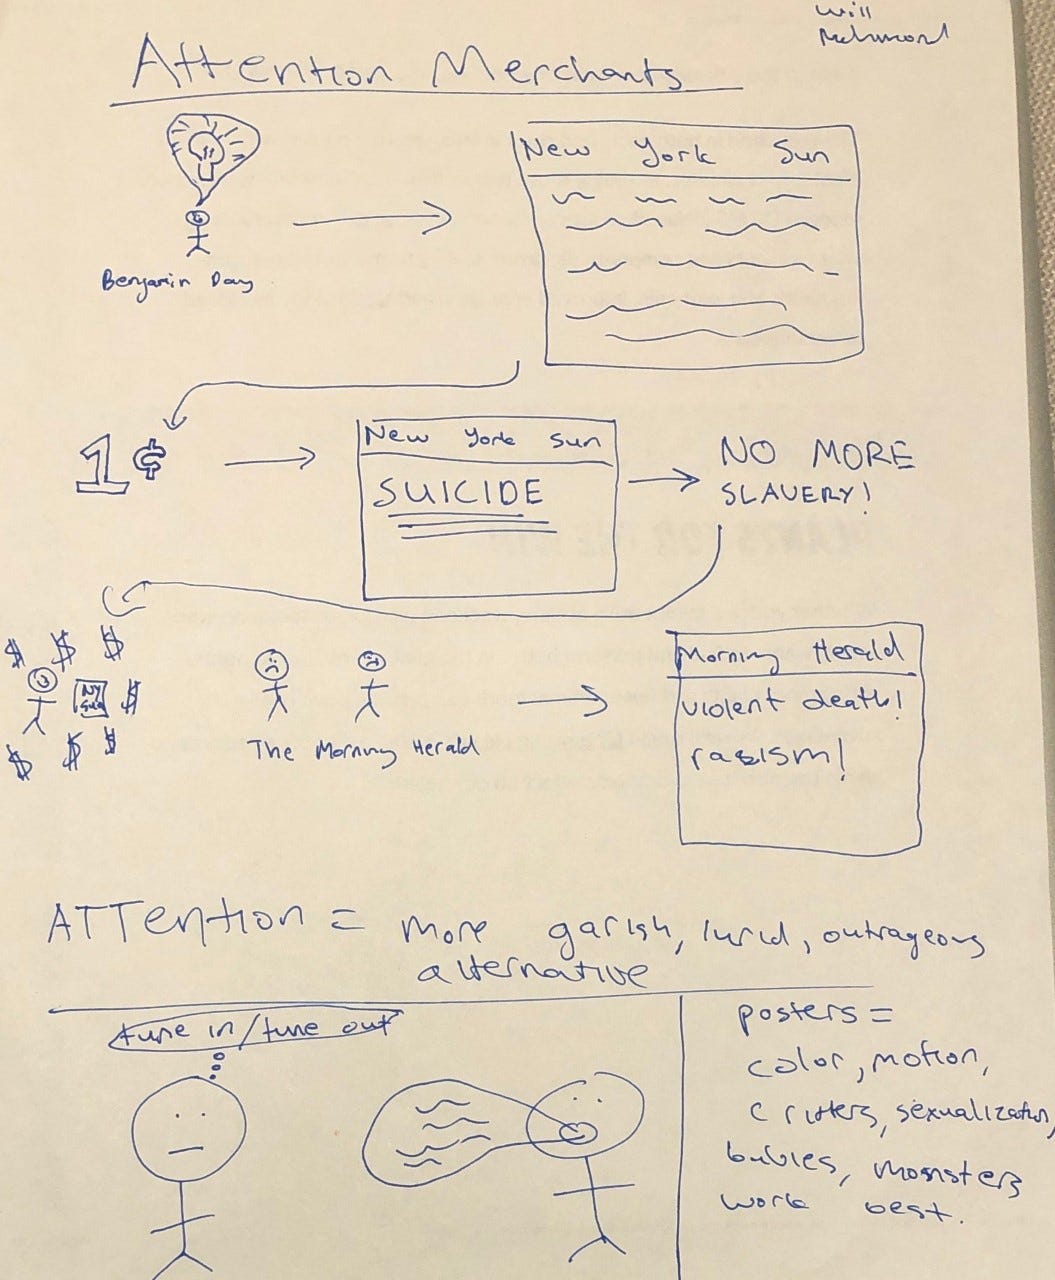 Will
Richmond
Attention Merchants
New York Sun
Benjamin Day
1¢
New York Sun
SUICIDE
NO MORE
SLAVERY!
$ $ $
NY
Sun
$
$ $ $
The Morning Herald
Morning Herald
violent death!
racism!
ATTention = more garish, lurid, outrageous
alternative
tune in/tune out
posters =
color, motion,
critters, sexualization,
babies, monsters
work best.